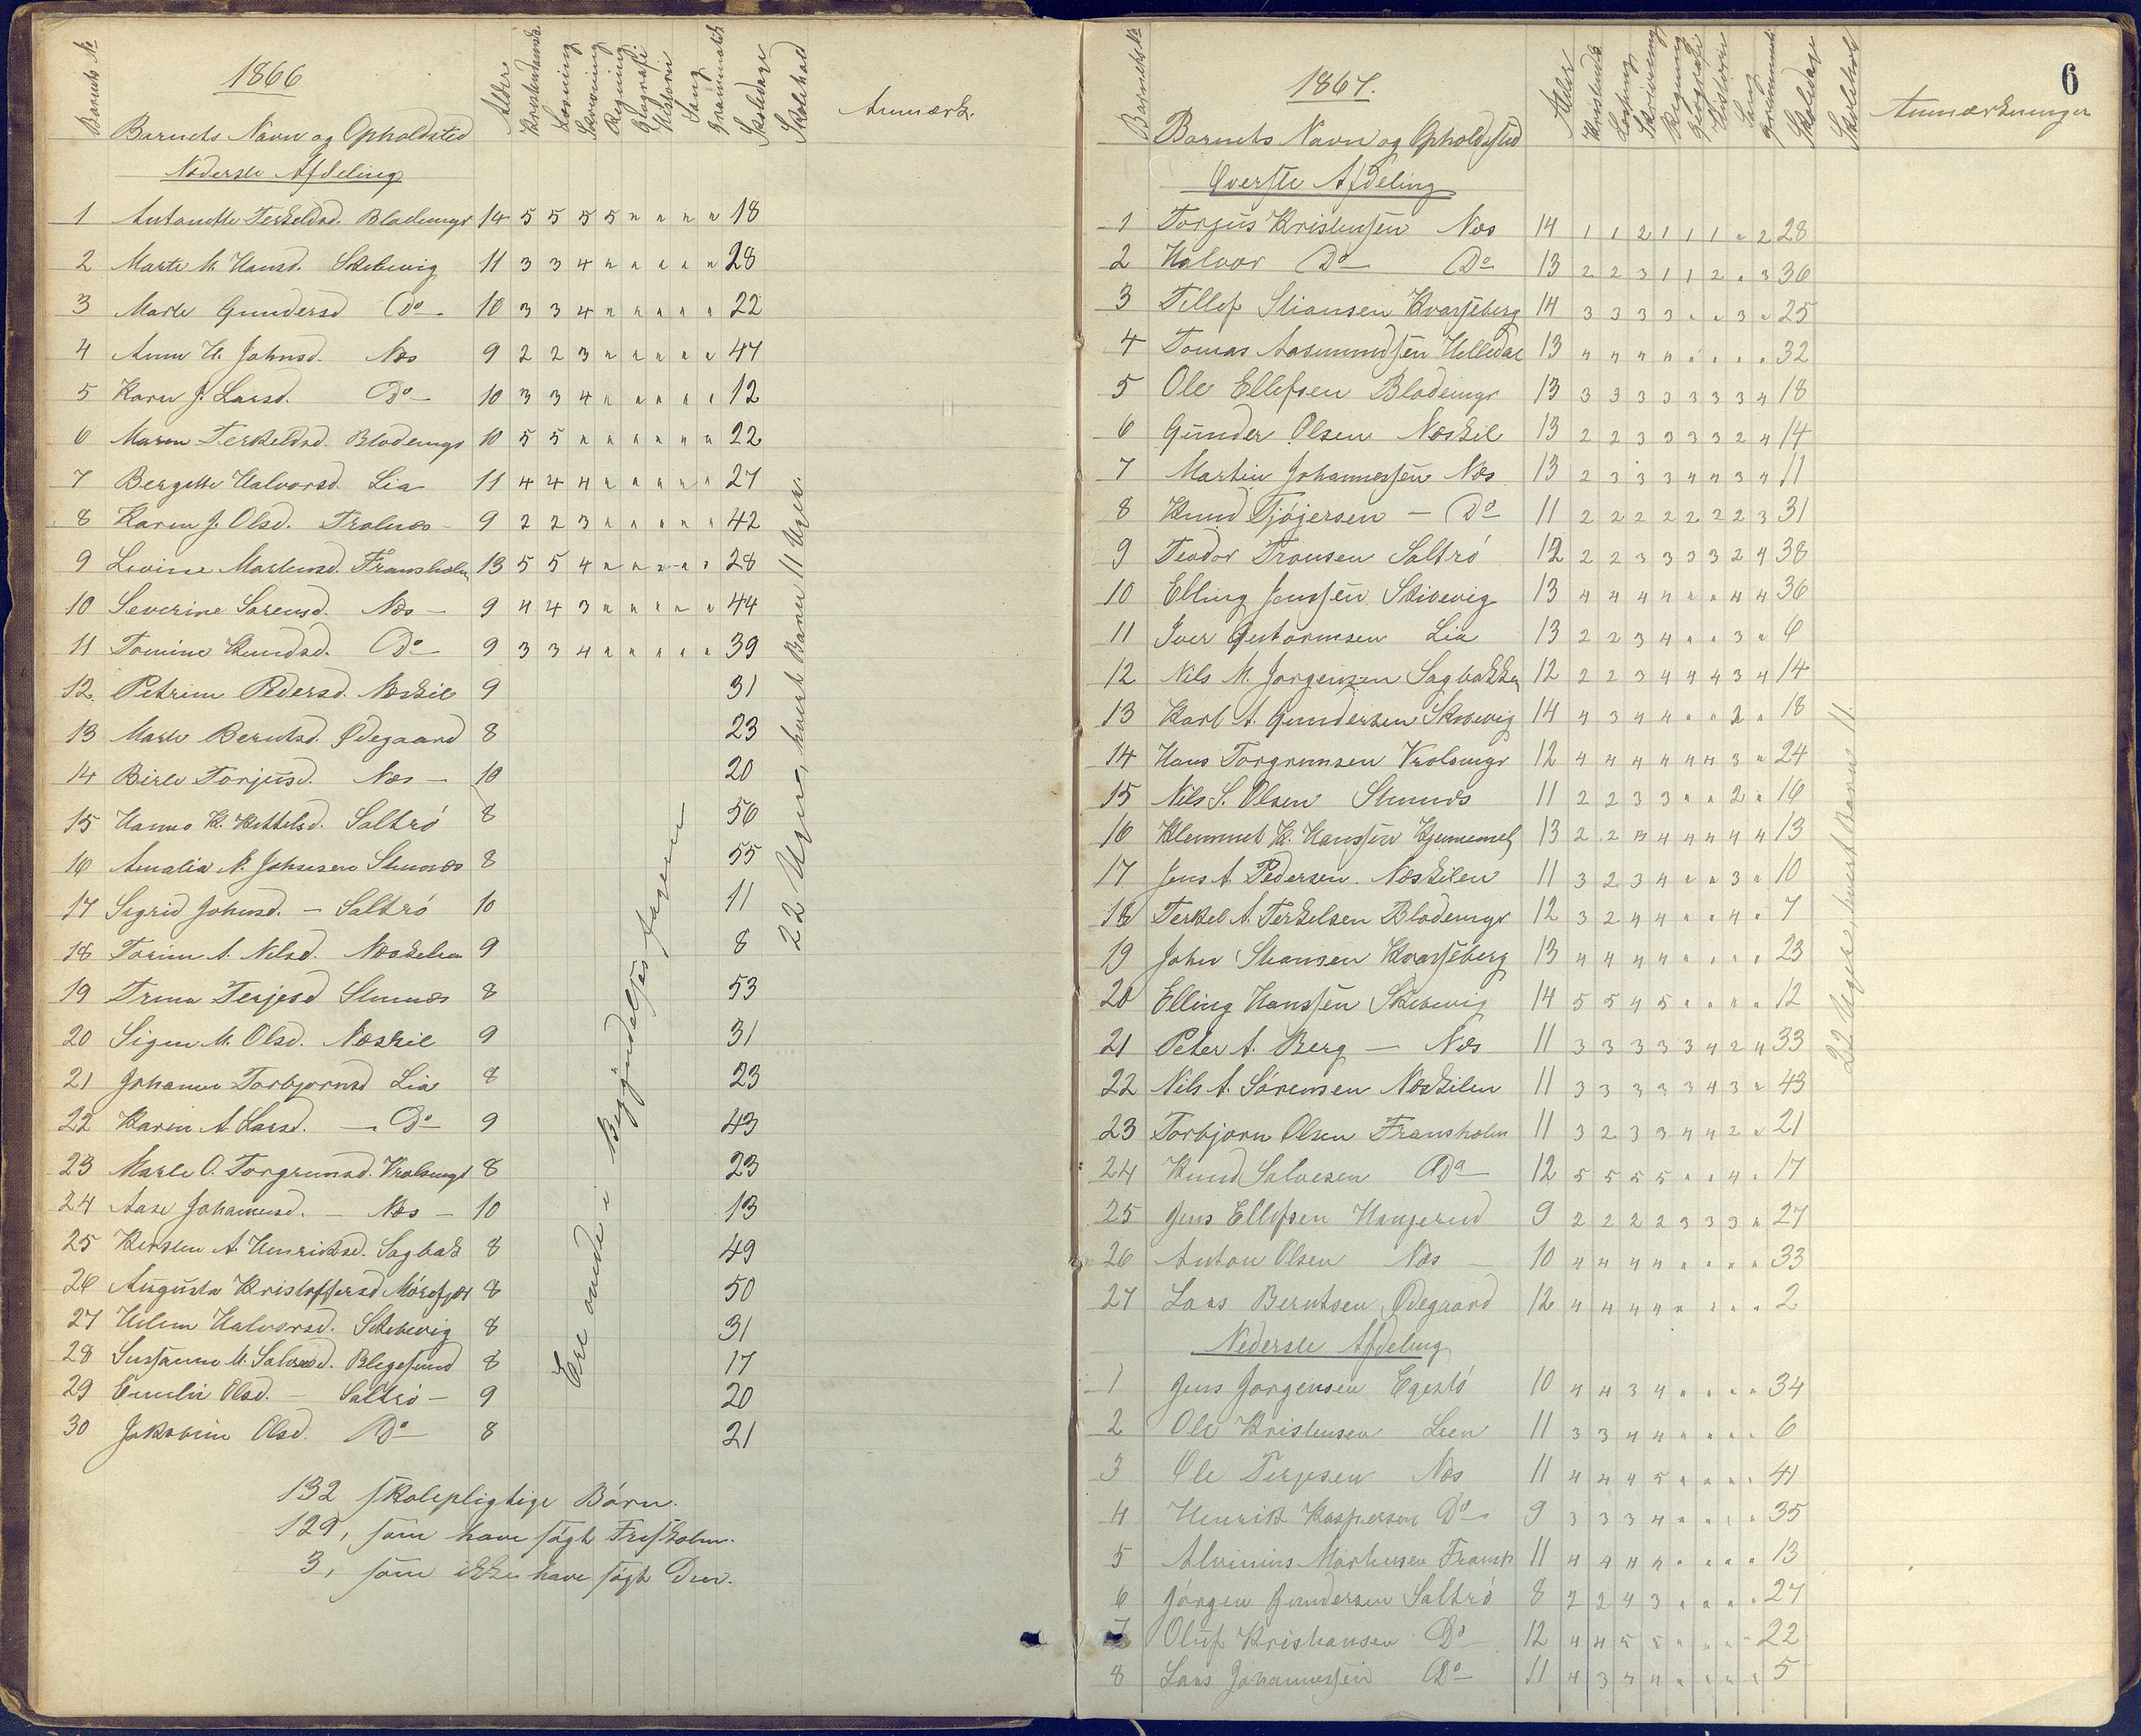 1866
Barnets No
Barnets Navn og Opholdsted
Alder
Kristendomsk
Læsning
Skrivning
Regning
Geografi
Historie
Sang
Grammatik
Skoledage
Skolehold
Anmærk.
Nederste Afdeling
1 Antonette Terkeldsd. Blodemyr 14 5 5 5 5 " " " " 18
2 Marte M. Hansd. Skibevig 11 3 3 4 " " " " " 28
3 Marte Gundersd Do 10 3 3 4 " " " " " 22
4 Anne H. Johnsd. Næs 9 2 2 3 " " " " " 47
5 Karn J. Larsd. Do 10 3 3 4 " " " " " 12
6 Maren Terkeldsd. Blodemyr 10 5 5 " " " " " " 22
7 Bergitte Halvorsd. Lia 11 4 4 4 " " " " " 27
8 Karen J. Olsd. Tralnæs 9 2 2 3 " " " " " 42
9 Levine Martensd. Fransholm 13 5 5 4 " " " " " 28
10 Severine Sørensd. Næs 9 4 4 3 " " " " " 44
11 Tomine Knudsd. Do 9 3 3 4 " " " " " 39
12 Petrine Pedersd. Næskil 9 31
13 Marte Berntsd. Ødegaard 8 23
14 Birte Torjusd. Næs 10 20
15 Hanna K. Kittelsd. Saltrø 8 56
16 Amalia N. Johnsen Stunæs 8 55
17 Sigrid Johnsd. - Saltrø 10 11
18 Torine A. Nilsd. Næskilen 9 8
19 Trine Terjesd Stunæs 8 53
20 Signe M. Olsd. Næskil 9 31
21 Johanne Torbjørnsd Lia 8 23
22 Karen A. Larsd. - Do 9 43
23 Marte O. Torgrimsd. Vrolsmyr 8 23
24 Aase Johannesd. - Næs - 10 13
25 Kirsten A. Henriksd. Sagbak 8 49
26 Augusta Kristoffersd Mørefjær 8 50
27 Helene Halvorsd. Skibevig 8 31
28 Susanne M. Salvesd. Blegesund 8 17
29 Emilie Olsd. - Saltrø - 9 20
30 Jakobine Olsd. Do 8 21
Ere ande i Begyndelsesfagene
22 Uger, hvert Barn 11 Uger.
132 skolepligtige Børn.
129, som have søgt Friskolen.
3, som ikke have søgt Den.
6
1867.
Barnets No
Barnets Navn og Opholdssted
Alder
Kristendk
Læsning
Skrivning
Regning
Geografi
Historie
Sang
Grammat
Skoledage
Skolehold
Anmærkninger
Øverste Afdeling
1 Torjus Kristensen Næs 14 1 1 2 1 1 1 " 2 28
2 Halvor Do Do 13 2 2 3 1 1 2 " 3 36
3 Tellef Stiansen Kvasjeberg 14 3 3 3 3 " " 3 " 25
4 Tomas Aasmundsen Helledal 13 4 4 4 4 " " " " 32
5 Ole Ellefsen Blodemyr 13 3 3 3 3 3 3 3 4 18
6 Gunder Olsen Næskil 13 2 2 3 3 3 3 2 4 14
7 Martin Johannessen Næs 13 2 3 3 3 4 4 3 4 11
8 Knud Tjøjersen - Do 11 2 2 2 2 2 2 2 3 31
9 Teodor Tronsen Saltrø 12 2 2 3 3 3 3 2 4 38
10 Elling Jenssen Skibevig 13 4 4 4 4 " " 4 4 36
11 Iver Gutormsen Lia 13 2 2 3 4 " " 3 " 6
12 Nils M. Jørgensen Sagbakken 12 2 2 3 4 4 4 3 4 14
13 Karl A. Gundersen Skibevig 14 4 3 4 4 " " 2 " 18
14 Hans Torgrimsen Vrolsmyr 12 4 4 4 4 4 4 3 " 24
15 Nils S. Olsen Stunæs 11 2 2 3 3 " " 2 " 16
16 Klemmet K. Hanssen Hjemmel 13 2 2 3 4 4 4 4 4 13
17 Jens A. Pedersen. Næskilen 11 3 2 3 4 " " 3 " 10
18 Terkel A. Terkelsen Blodemyr 12 3 2 4 4 " " 4 " 7
19 John Stiansen Kvasjeberg 13 4 4 4 4 " " " " 23
20 Elling Hanssen Skibevig 14 5 5 4 5 " " " " 12
21 Peter A. Berg - Næs 11 3 3 3 3 3 4 2 4 33
22 Nils A. Sørensen Næskilen 11 3 3 3 3 3 4 3 " 43
23 Torbjørn Olsen Fransholm 11 3 2 3 3 4 4 2 " 21
24 Knud Salvesen Do 12 5 5 5 5 " " 4 " 17
25 Jens Ellefsen Hangerud 9 2 2 2 2 3 3 3 " 27
26 Anton Olsen Næs - 10 4 4 4 4 " " " " 33
27 Lars Berntsen Ødegaard 12 4 4 4 4 " " " " 2
Nederste Afdeling
1 Jens Jørgensen Egestø 10 4 4 3 4 " " " " 34
2 Ole Kristensen Leen 11 3 3 4 4 " " " " 6
3 Ole Terjesen Næs 11 4 4 4 5 " " " " 41
4 Henrik Kaspersen Do 9 3 3 3 4 " " " " 35
5 Alvinius Martensen Fransh 11 4 4 4 4 " " " " 13
6 Jørgen Gundersen Saltrø 8 2 2 4 3 " " " " 27
7 Oluf Kristiansen Do 12 4 4 5 5 " " " " 22
8 Lars Johannessen Do 11 4 3 4 4 " " " " 5
22 Uger, hvert Barn 11.